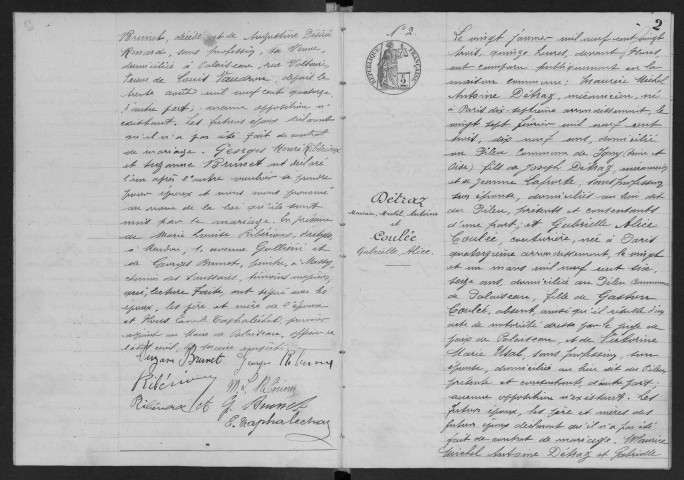 Brunet, décédé et de Augustine Désirée
Renard, sans profession, sa veuve,
domiciliée à Palaiseau, rue Voltaire
veuve de Louis Vaudran, depuis le
trente août mil neuf cent quatorze
d'autre part; aucune opposition n'
existant. Les futurs époux déclarent
qu'il n'a pas été fait de contrat
de mariage. Georges Henri Ribérioux
et Suzanne Brunet ont déclaré
l'un après l'autre vouloir se prendre
pour époux et nous avons prononcé
au nom de la loi qu'ils sont
unis par le mariage. En présence
de Marie Louise Ribérioux,
à Meudon, 1, avenue Gallieni et
de Georges Brunet, peintre, à Massy,
chemin des témoins majeurs,
qui, lecture faite, ont signé avec les
époux, les père et mère de l'épouse
et Nous Ernest Caphalechat, premier
adjoint au Maire de Palaiseau, officier de
l'état civil,
Suzanne Brunet Georges Ribérioux
Ribérioux M.L. Ribérioux
G. Brunet
E. Caphalechat
N° 2
RÉPUBLIQUE FRANÇAISE
Détraz
Maurice, Michel Antoine
et
Coulée
Gabrielle Alice
2
Le vingt janvier mil neuf cent vingt
trois, quinze heures, devant Nous
ont comparu publiquement en la
maison commune: Maurice Michel
Antoine Détraz, mécanicien, né
à Paris dix septième arrondissement, le
vingt sept février mil neuf cent
trois, dix neuf ans, domicilié
au Pileu Commune de Igny (Seine et
Oise) fils de Joseph Détraz, mécanicien
et de Jeanne Laporte, sans profession
son épouse, domiciliés au lieu dit
du Pileu, présents et consentants
d'une part; et Gabrielle Alice
Coulée, couturière, née à Paris
quatorzième arrondissement, le vingt
et un mars mil neuf cent six,
seize ans, domiciliée au Pileu commune
de Palaiseau, fille de Gaston
Coulée, absent, ainsi qu'il résulte d'un
acte de notoriété dressé par le juge de
paix de Palaiseau, et de Victorine
Marie sans profession, son
épouse, domiciliée au lieu dit du Pileu,
présente et consentante, d'autre part;
aucune opposition n'existant. Les
futurs époux, les père et mères des
futurs époux déclarent qu'il n'a pas été
fait de contrat de mariage. Maurice
Michel Antoine Détraz et Gabrielle